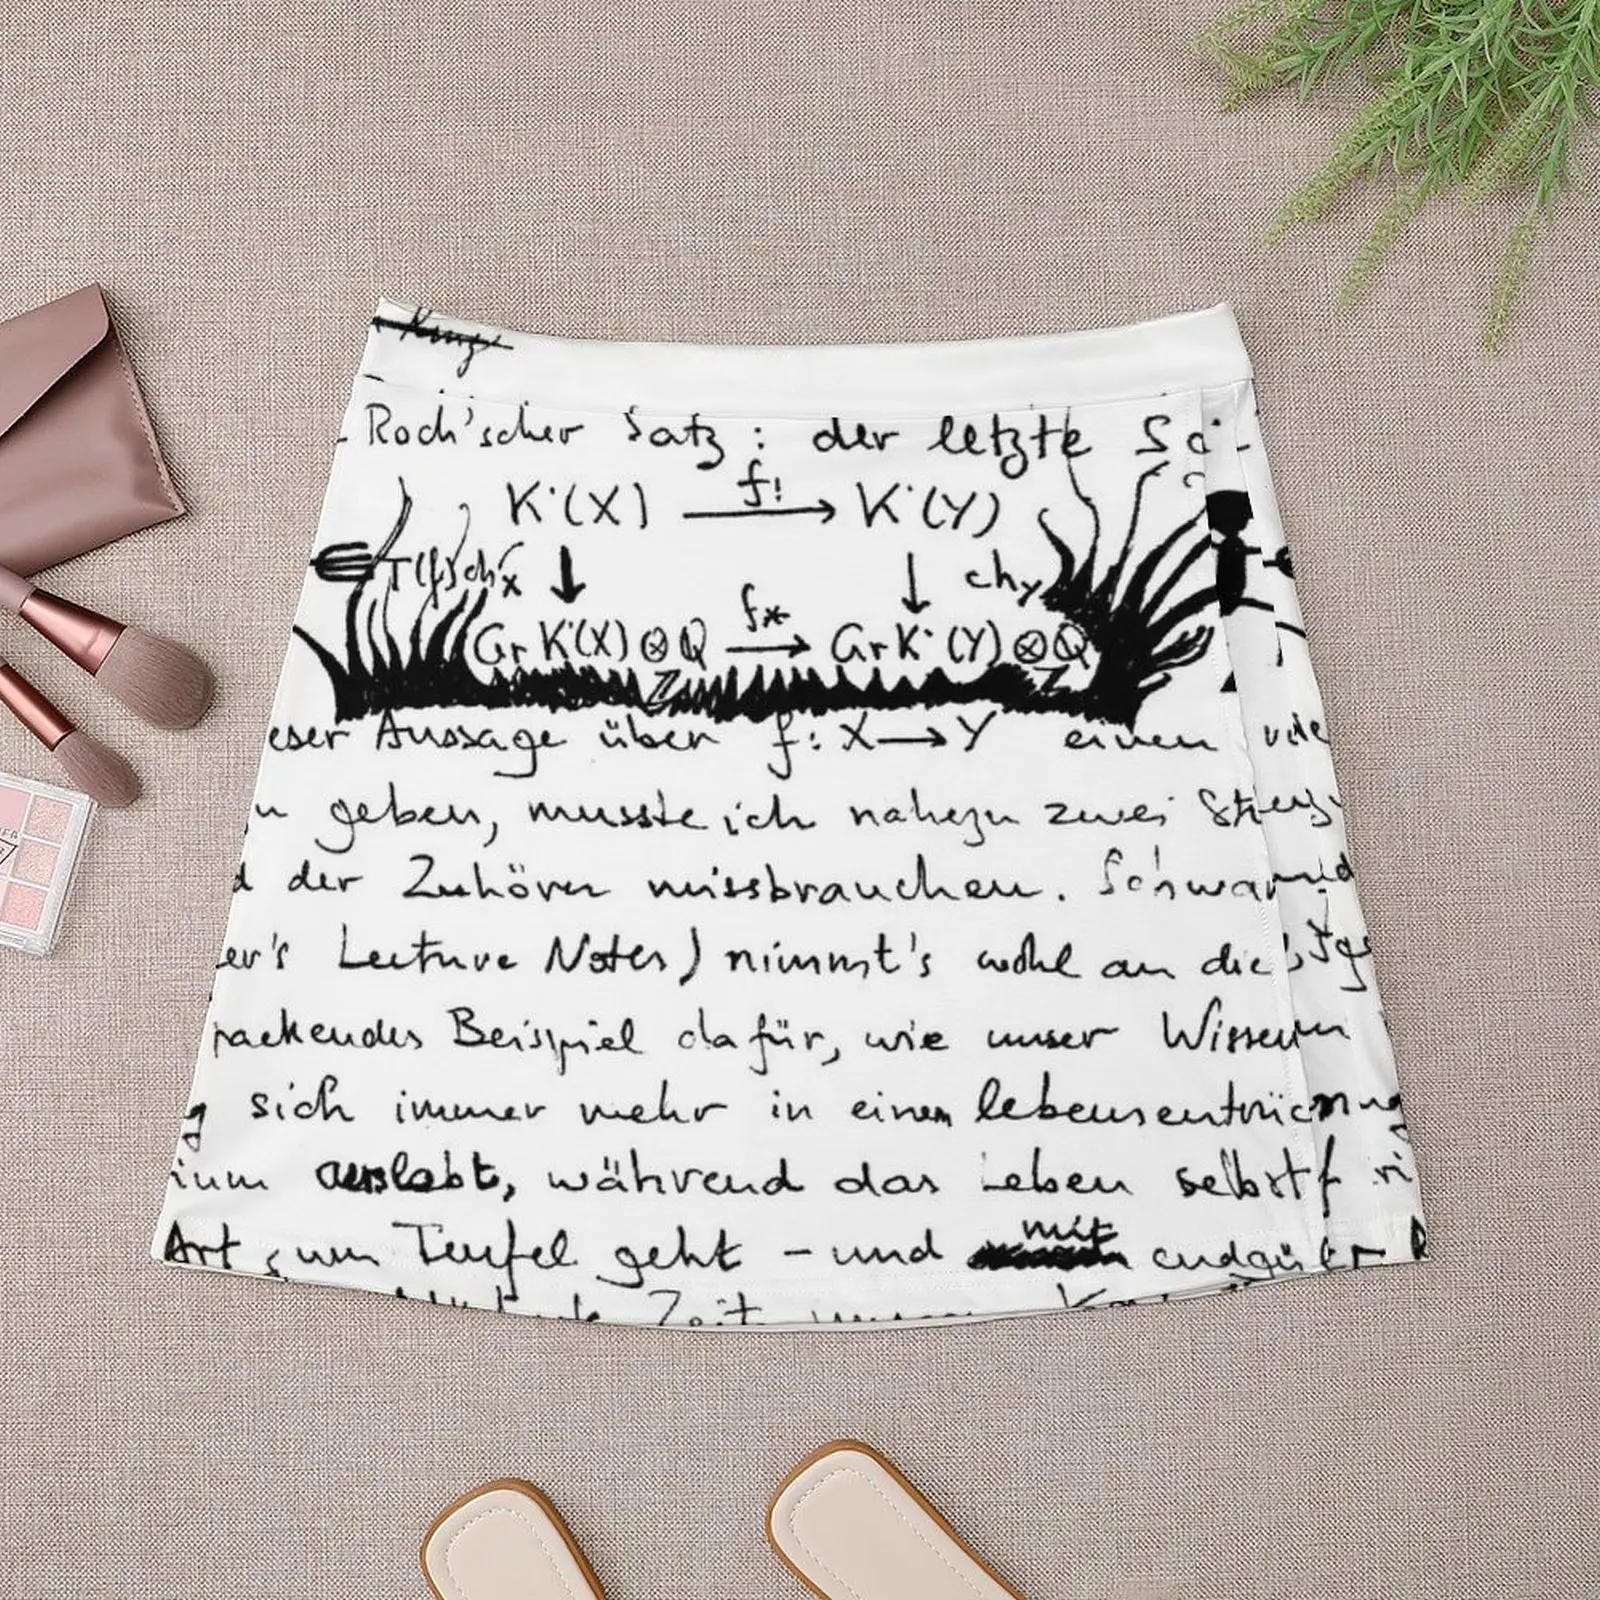 Roch'scher Satz: der letzte
K˙(X) f! → K˙(Y)
T(f)chx ↓ ↓ chy
Gr K˙(X) ⊗ Q f* → Gr K˙(Y) ⊗ Q
Z Z
eser Aussage über f: X → Y einen
geben, musste ich nahezu zwei
der Zuhörer missbrauchen.
er's Lecture Notes) nimmt's wohl an die
packendes Beispiel dafür, wie unser Wissen
g sich immer mehr in einem lebensentrück
ium auslebt, während das Leben selbst
Art zum Teufel geht – und mit endgül
Zeit